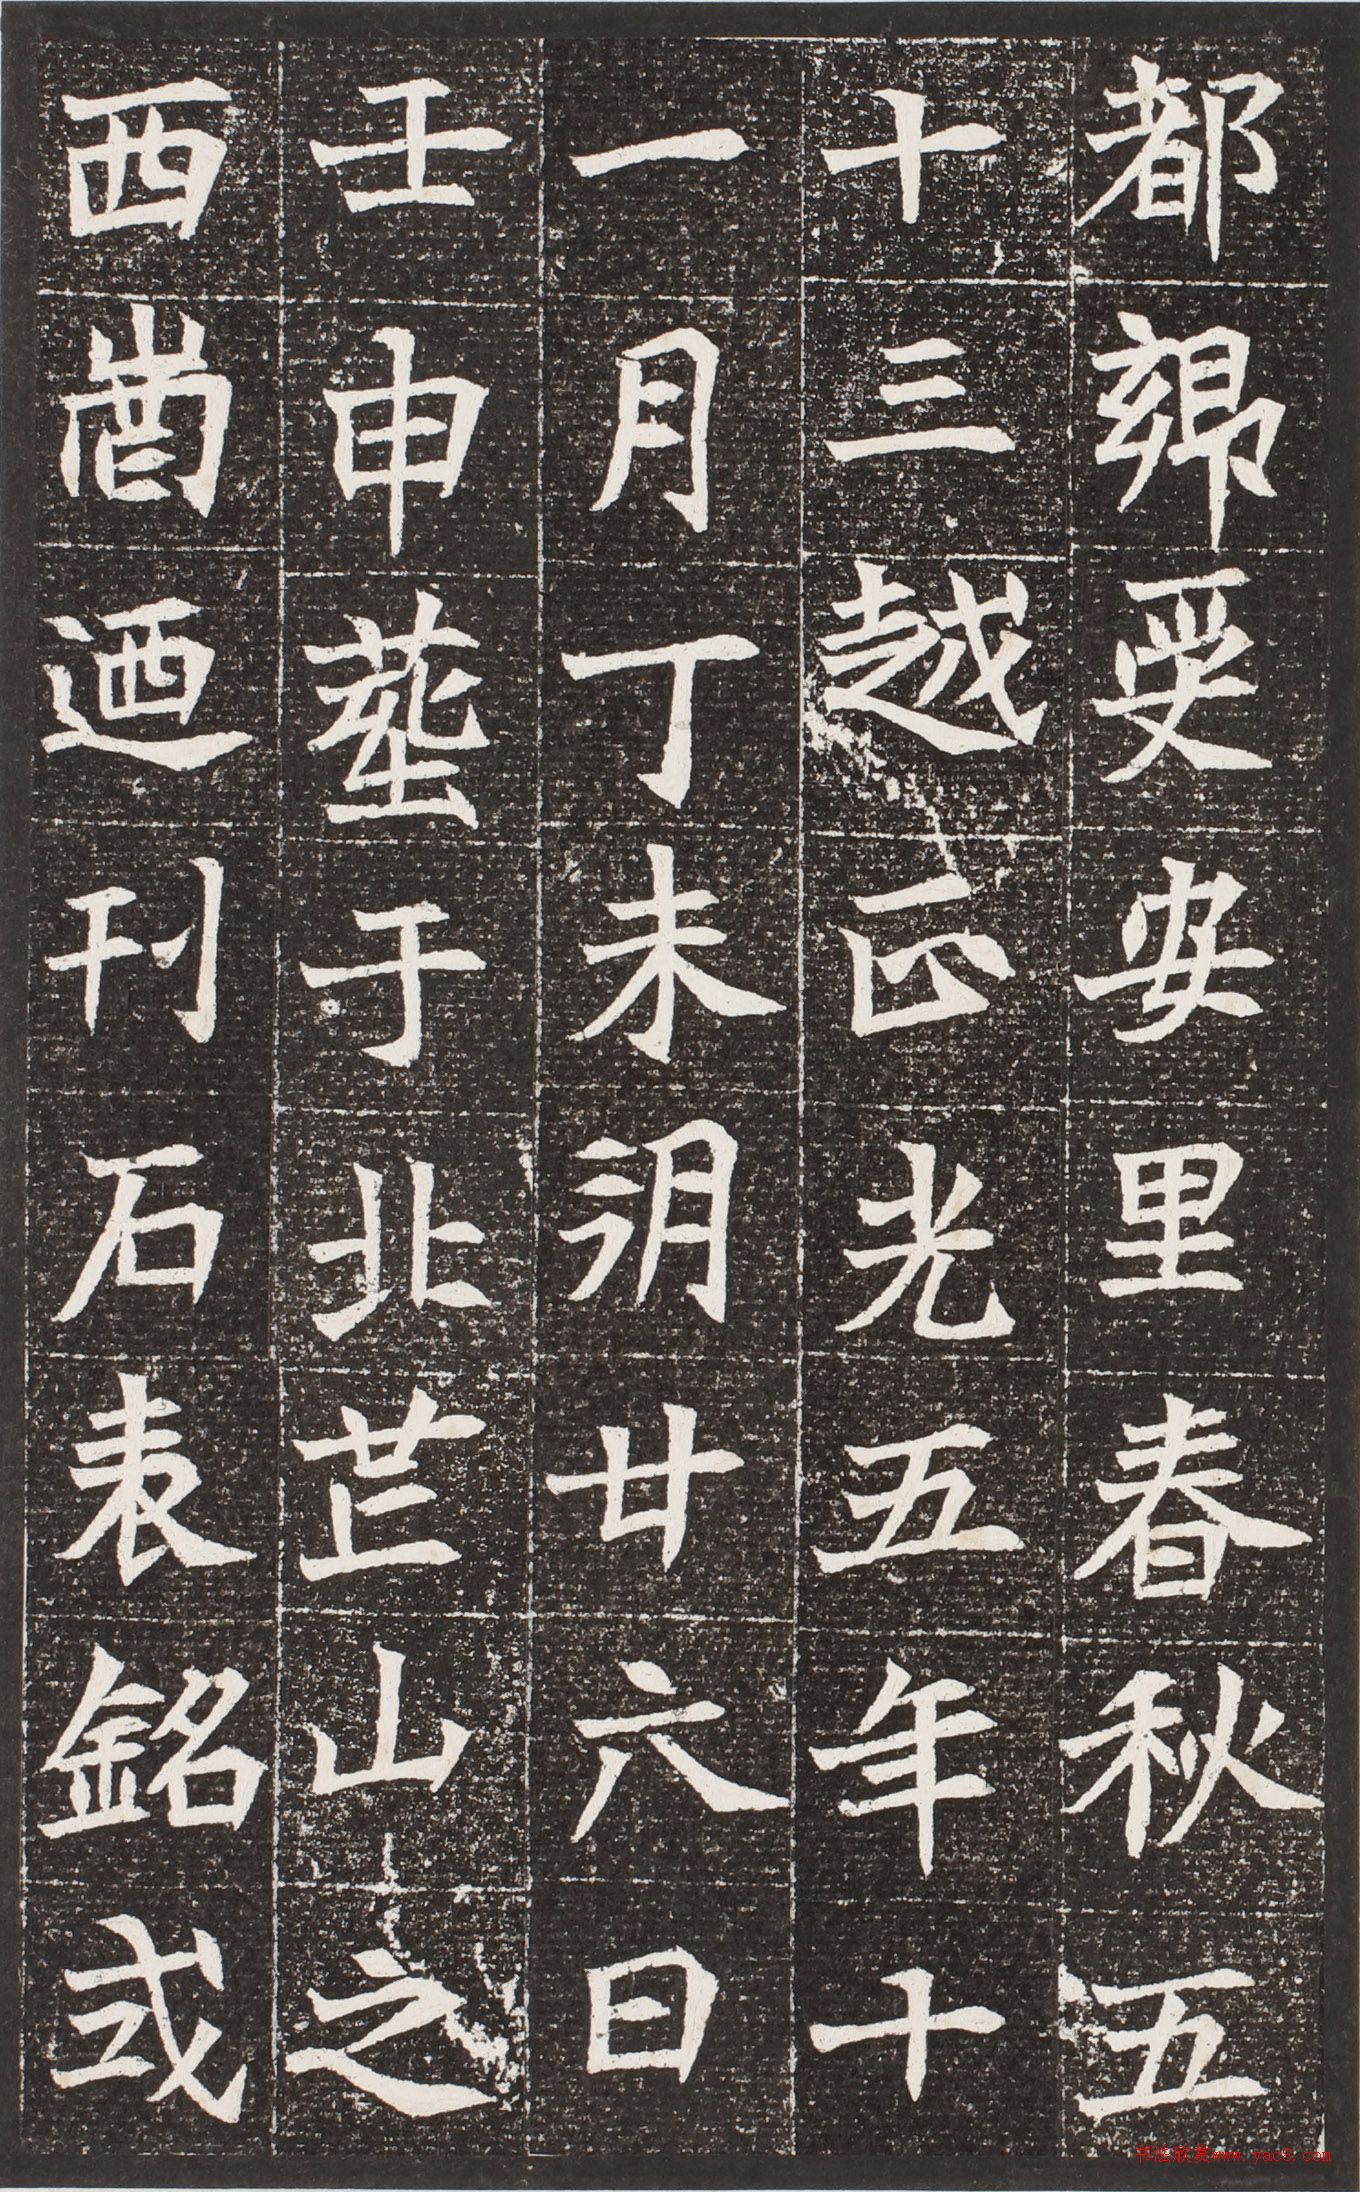 都鄉受安里春秋五
十三越正光五年十
一月丁未朔廿六日
壬申塟于北芒山之
西崗迺刊石表銘式
书法欣赏www.yac8.com